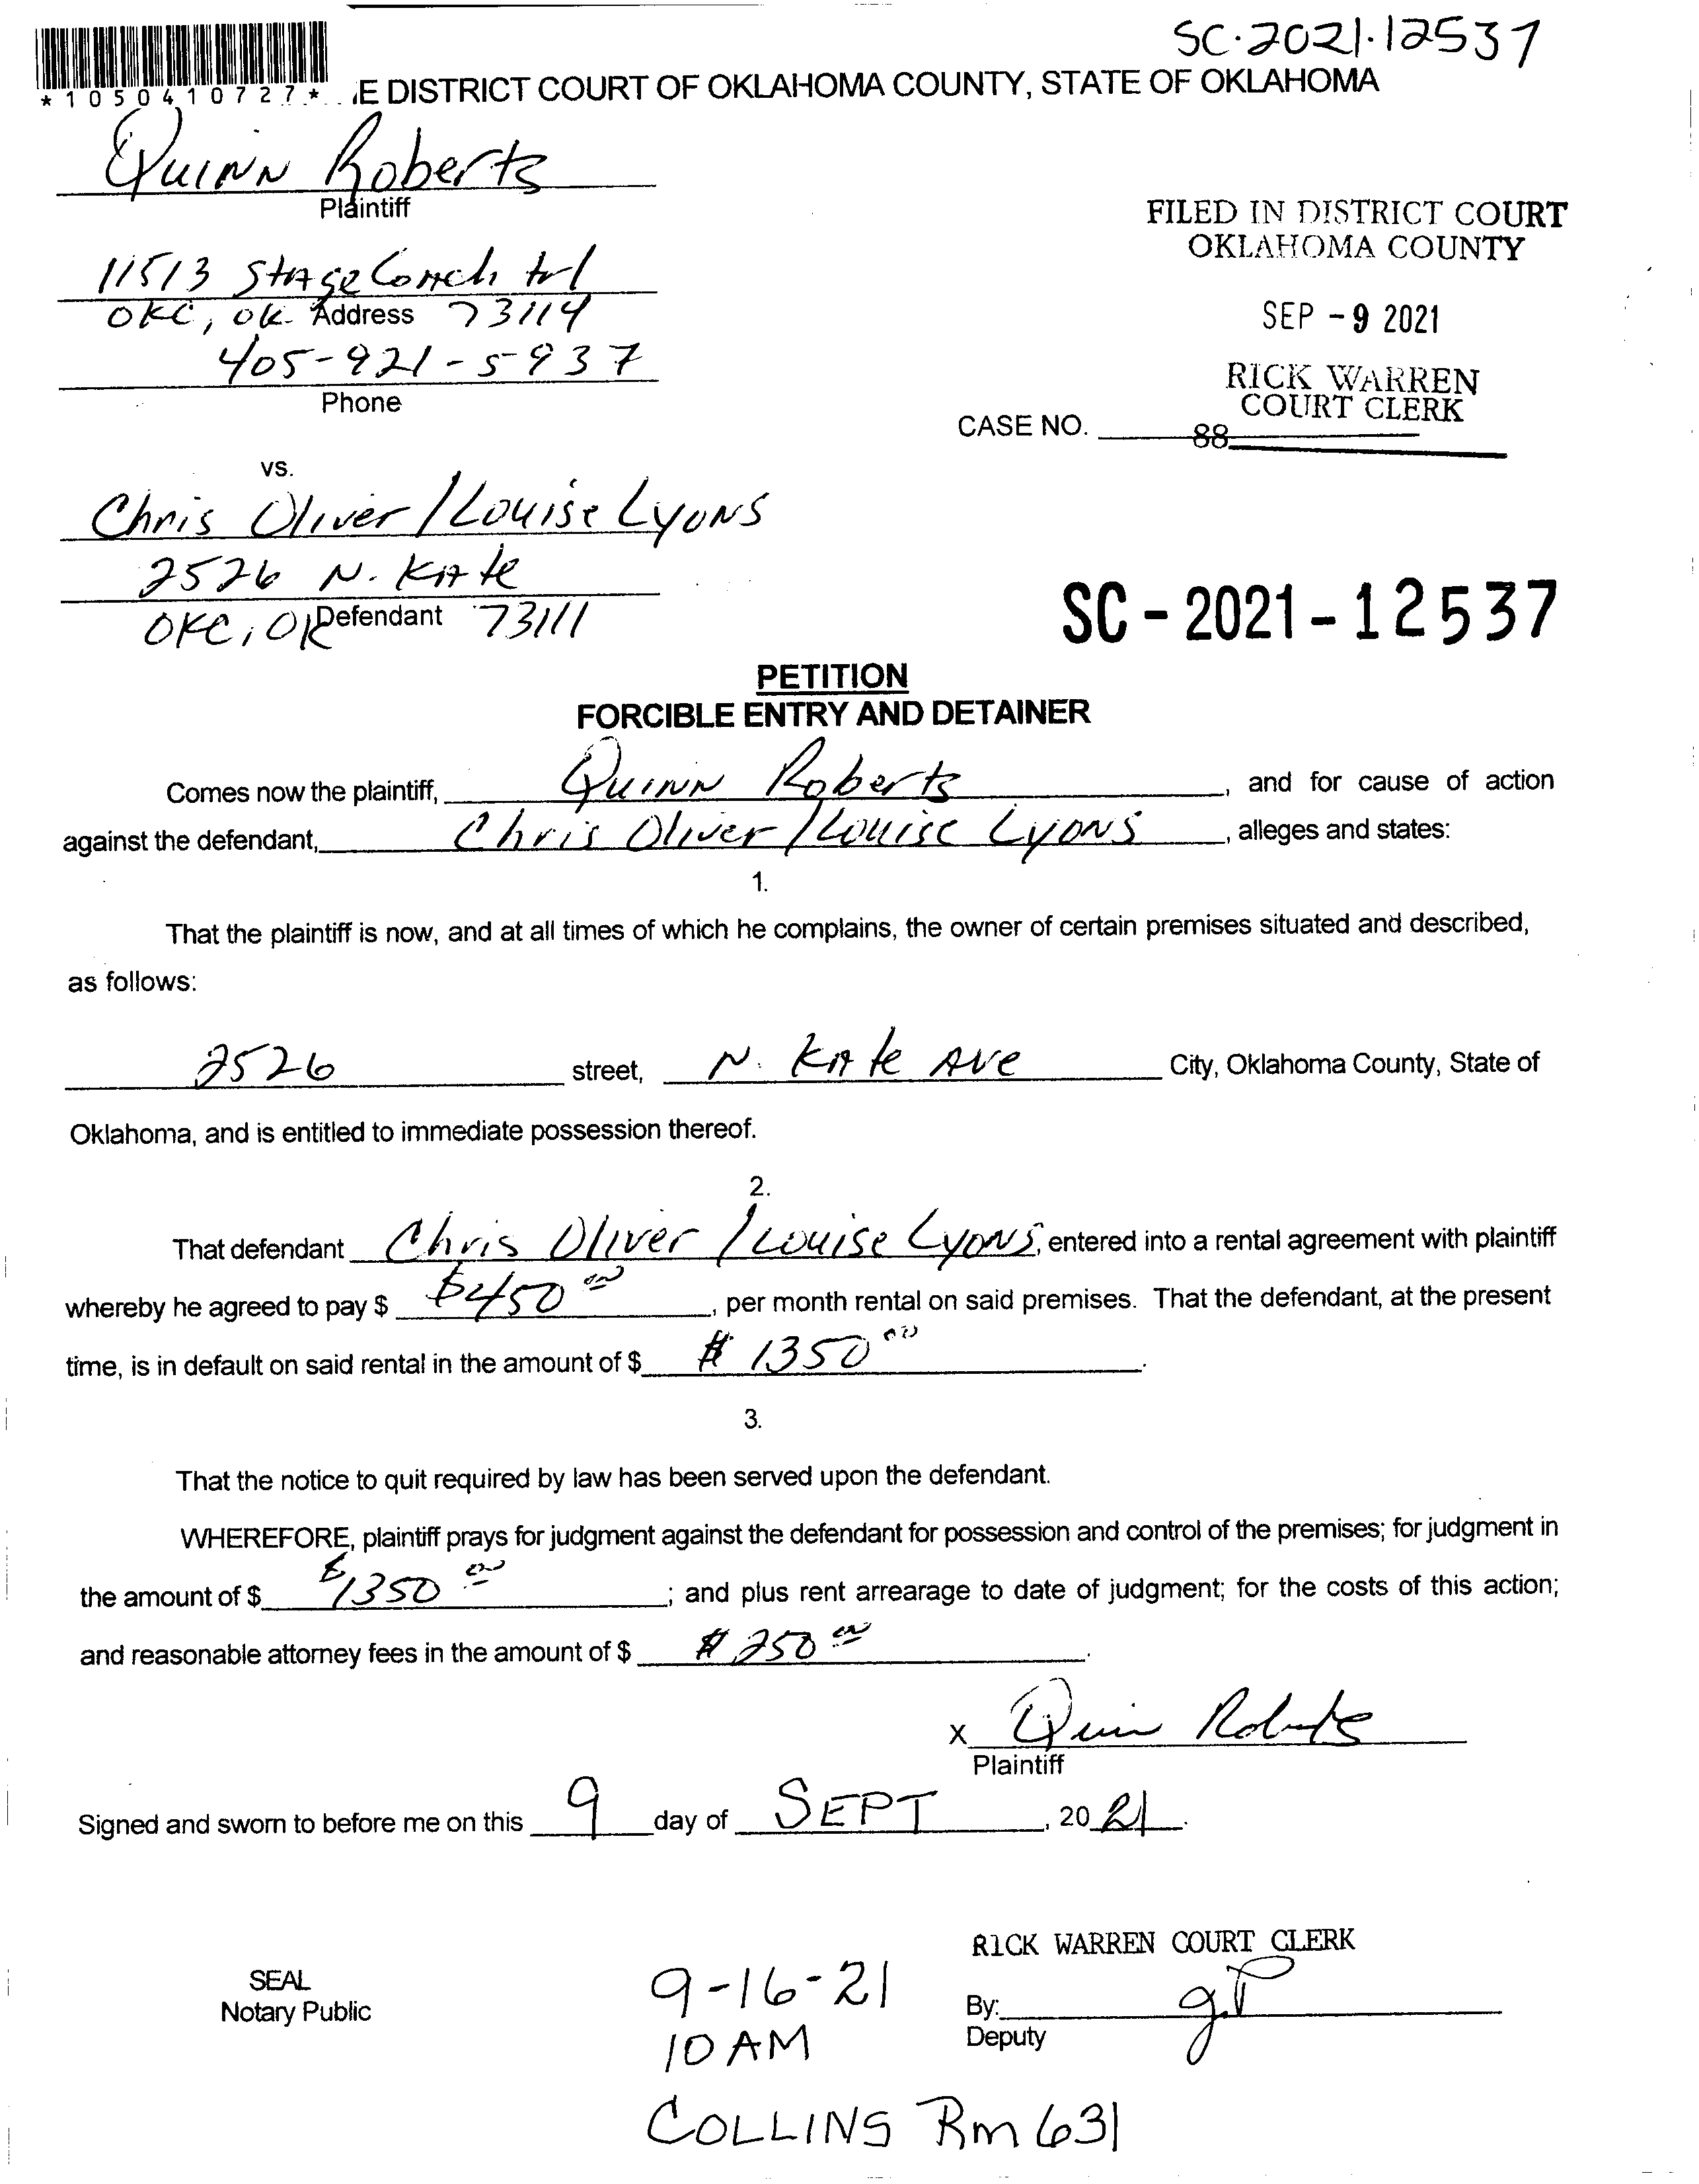 SC·2021·12537
*1050410727*
E DISTRICT COURT OF OKLAHOMA COUNTY, STATE OF OKLAHOMA
Quinn Roberts
Plaintiff
FILED IN DISTRICT COURT
OKLAHOMA COUNTY
11513 StageCoach trl
OKC, OK. Address 73114
SEP -9 2021
405-921-5937
Phone
RICK WARREN
COURT CLERK
CASE NO.
88
vs.
Chris Oliver / Louise Lyons
2526 N. Kate
OKC, OK Defendant 73111
SC-2021-12537
PETITION
FORCIBLE ENTRY AND DETAINER
Comes now the plaintiff, Quinn Roberts, and for cause of action
against the defendant, Chris Oliver / Louise Lyons, alleges and states:
1.
That the plaintiff is now, and at all times of which he complains, the owner of certain premises situated and described,
as follows:
2526 street, N. Kate Ave City, Oklahoma County, State of
Oklahoma, and is entitled to immediate possession thereof.
2.
That defendant Chris Oliver / Louise Lyons, entered into a rental agreement with plaintiff
whereby he agreed to pay $ $450 00, per month rental on said premises. That the defendant, at the present
time, is in default on said rental in the amount of $ $ 1350 00.
3.
That the notice to quit required by law has been served upon the defendant.
WHEREFORE, plaintiff prays for judgment against the defendant for possession and control of the premises; for judgment in
the amount of $ $1350 00; and plus rent arrearage to date of judgment; for the costs of this action;
and reasonable attorney fees in the amount of $ $ 250 00.
X Quinn Roberts
Plaintiff
Signed and sworn to before me on this 9 day of SEPT, 20 21.
RICK WARREN COURT CLERK
SEAL
Notary Public
9-16-21
By:
Deputy
10 AM
COLLINS Rm 631